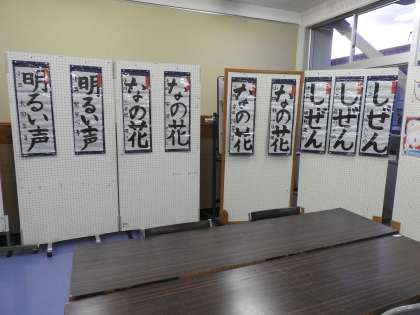 明るい声
明るい声
なの花
なの花
なの花
なの花
しぜん
しぜん
しぜん